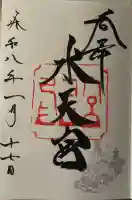 奉拝
水天宮
令和八年一月十七日